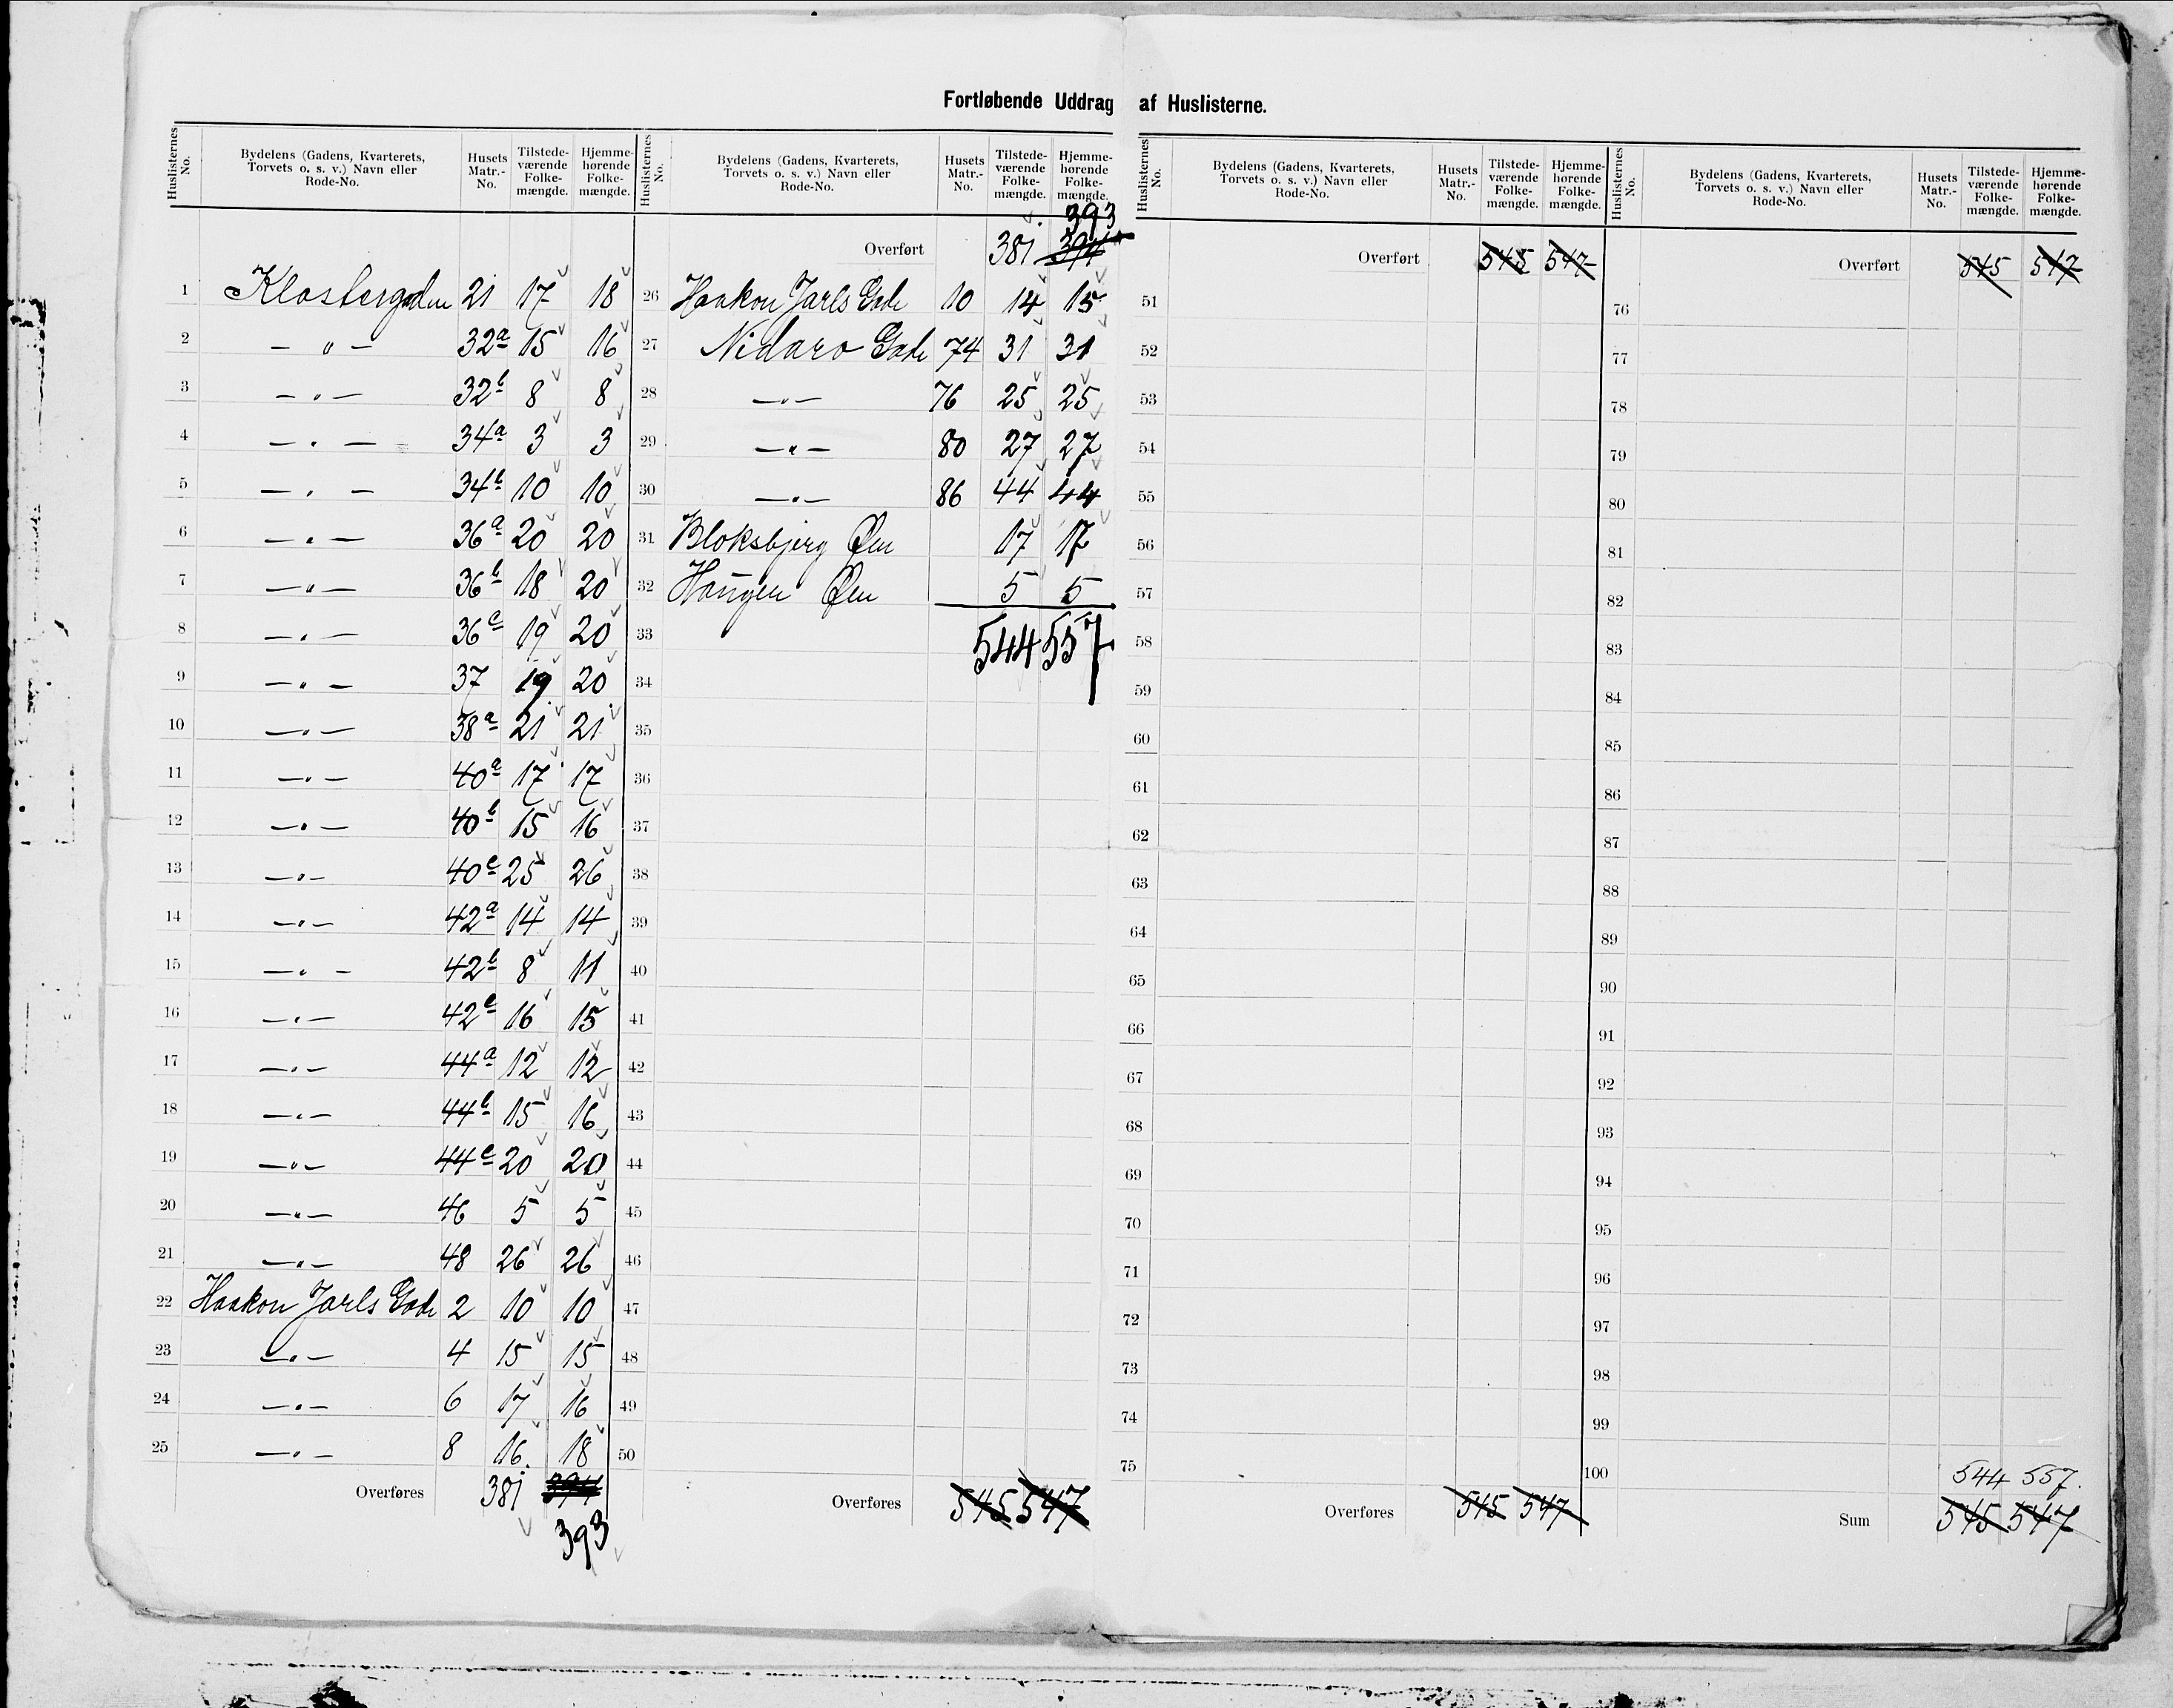 Fortløbende Uddrag af Huslisterne.
Huslisternes No. Bydelens (Gadens, Kvarterets, Torvets o. s. v.) Navn eller Rode-No. Husets Matr.-No. Tilstede-værende Folke-mængde. Hjemme-hørende Folke-mængde.
1 Klostergaden 21 17 18
2 — " — 32a 15 16
3 — " — 32b 8 8
4 — " — 34a 3 3
5 — " — 34b 10 10
6 — " — 36a 20 20
7 — " — 36b 18 20
8 — " — 36c 19 20
9 — " — 37 19 20
10 — " — 38a 21 21
11 — " — 40a 17 17
12 — " — 40b 15 16
13 — " — 40c 25 26
14 — " — 42a 14 14
15 — " — 42b 8 11
16 — " — 42c 16 15
17 — " — 44a 12 12
18 — " — 44b 15 16
19 — " — 44c 20 20
20 — " — 46 5 5
21 — " — 48 26 26
22 Haakon Jarls Gade 2 10 10
23 — " — 4 15 15
24 — " — 6 17 16
25 — " — 8 16 18
Overføres 381 394
393
Huslisternes No. Bydelens (Gadens, Kvarterets, Torvets o. s. v.) Navn eller Rode-No. Husets Matr.-No. Tilstede-værende Folke-mængde. Hjemme-hørende Folke-mængde.
393
Overført 381 394
26 Haakon Jarls Gade 10 14 15
27 Nidaro Gade 74 31 31
28 — " — 76 25 25
29 — " — 80 27 27
30 — " — 86 44 44
31 Bloksbjerg Øen 17 17
32 Haugen Øen 5 5
33 544 557
34
35
36
37
38
39
40
41
42
43
44
45
46
47
48
49
50
Overføres 545 547
Huslisternes No. Bydelens (Gadens, Kvarterets, Torvets o. s. v.) Navn eller Rode-No. Husets Matr.-No. Tilstede-værende Folke-mængde. Hjemme-hørende Folke-mængde.
Overført 545 547
51
52
53
54
55
56
57
58
59
60
61
62
63
64
65
66
67
68
69
70
71
72
73
74
75
Overføres 545 547
Huslisternes No. Bydelens (Gadens, Kvarterets, Torvets o. s. v.) Navn eller Rode-No. Husets Matr.-No. Tilstede-værende Folke-mængde. Hjemme-hørende Folke-mængde.
Overført 545 547
76
77
78
79
80
81
82
83
84
85
86
87
88
89
90
91
92
93
94
95
96
97
98
99
100 544 557.
Sum 545 547